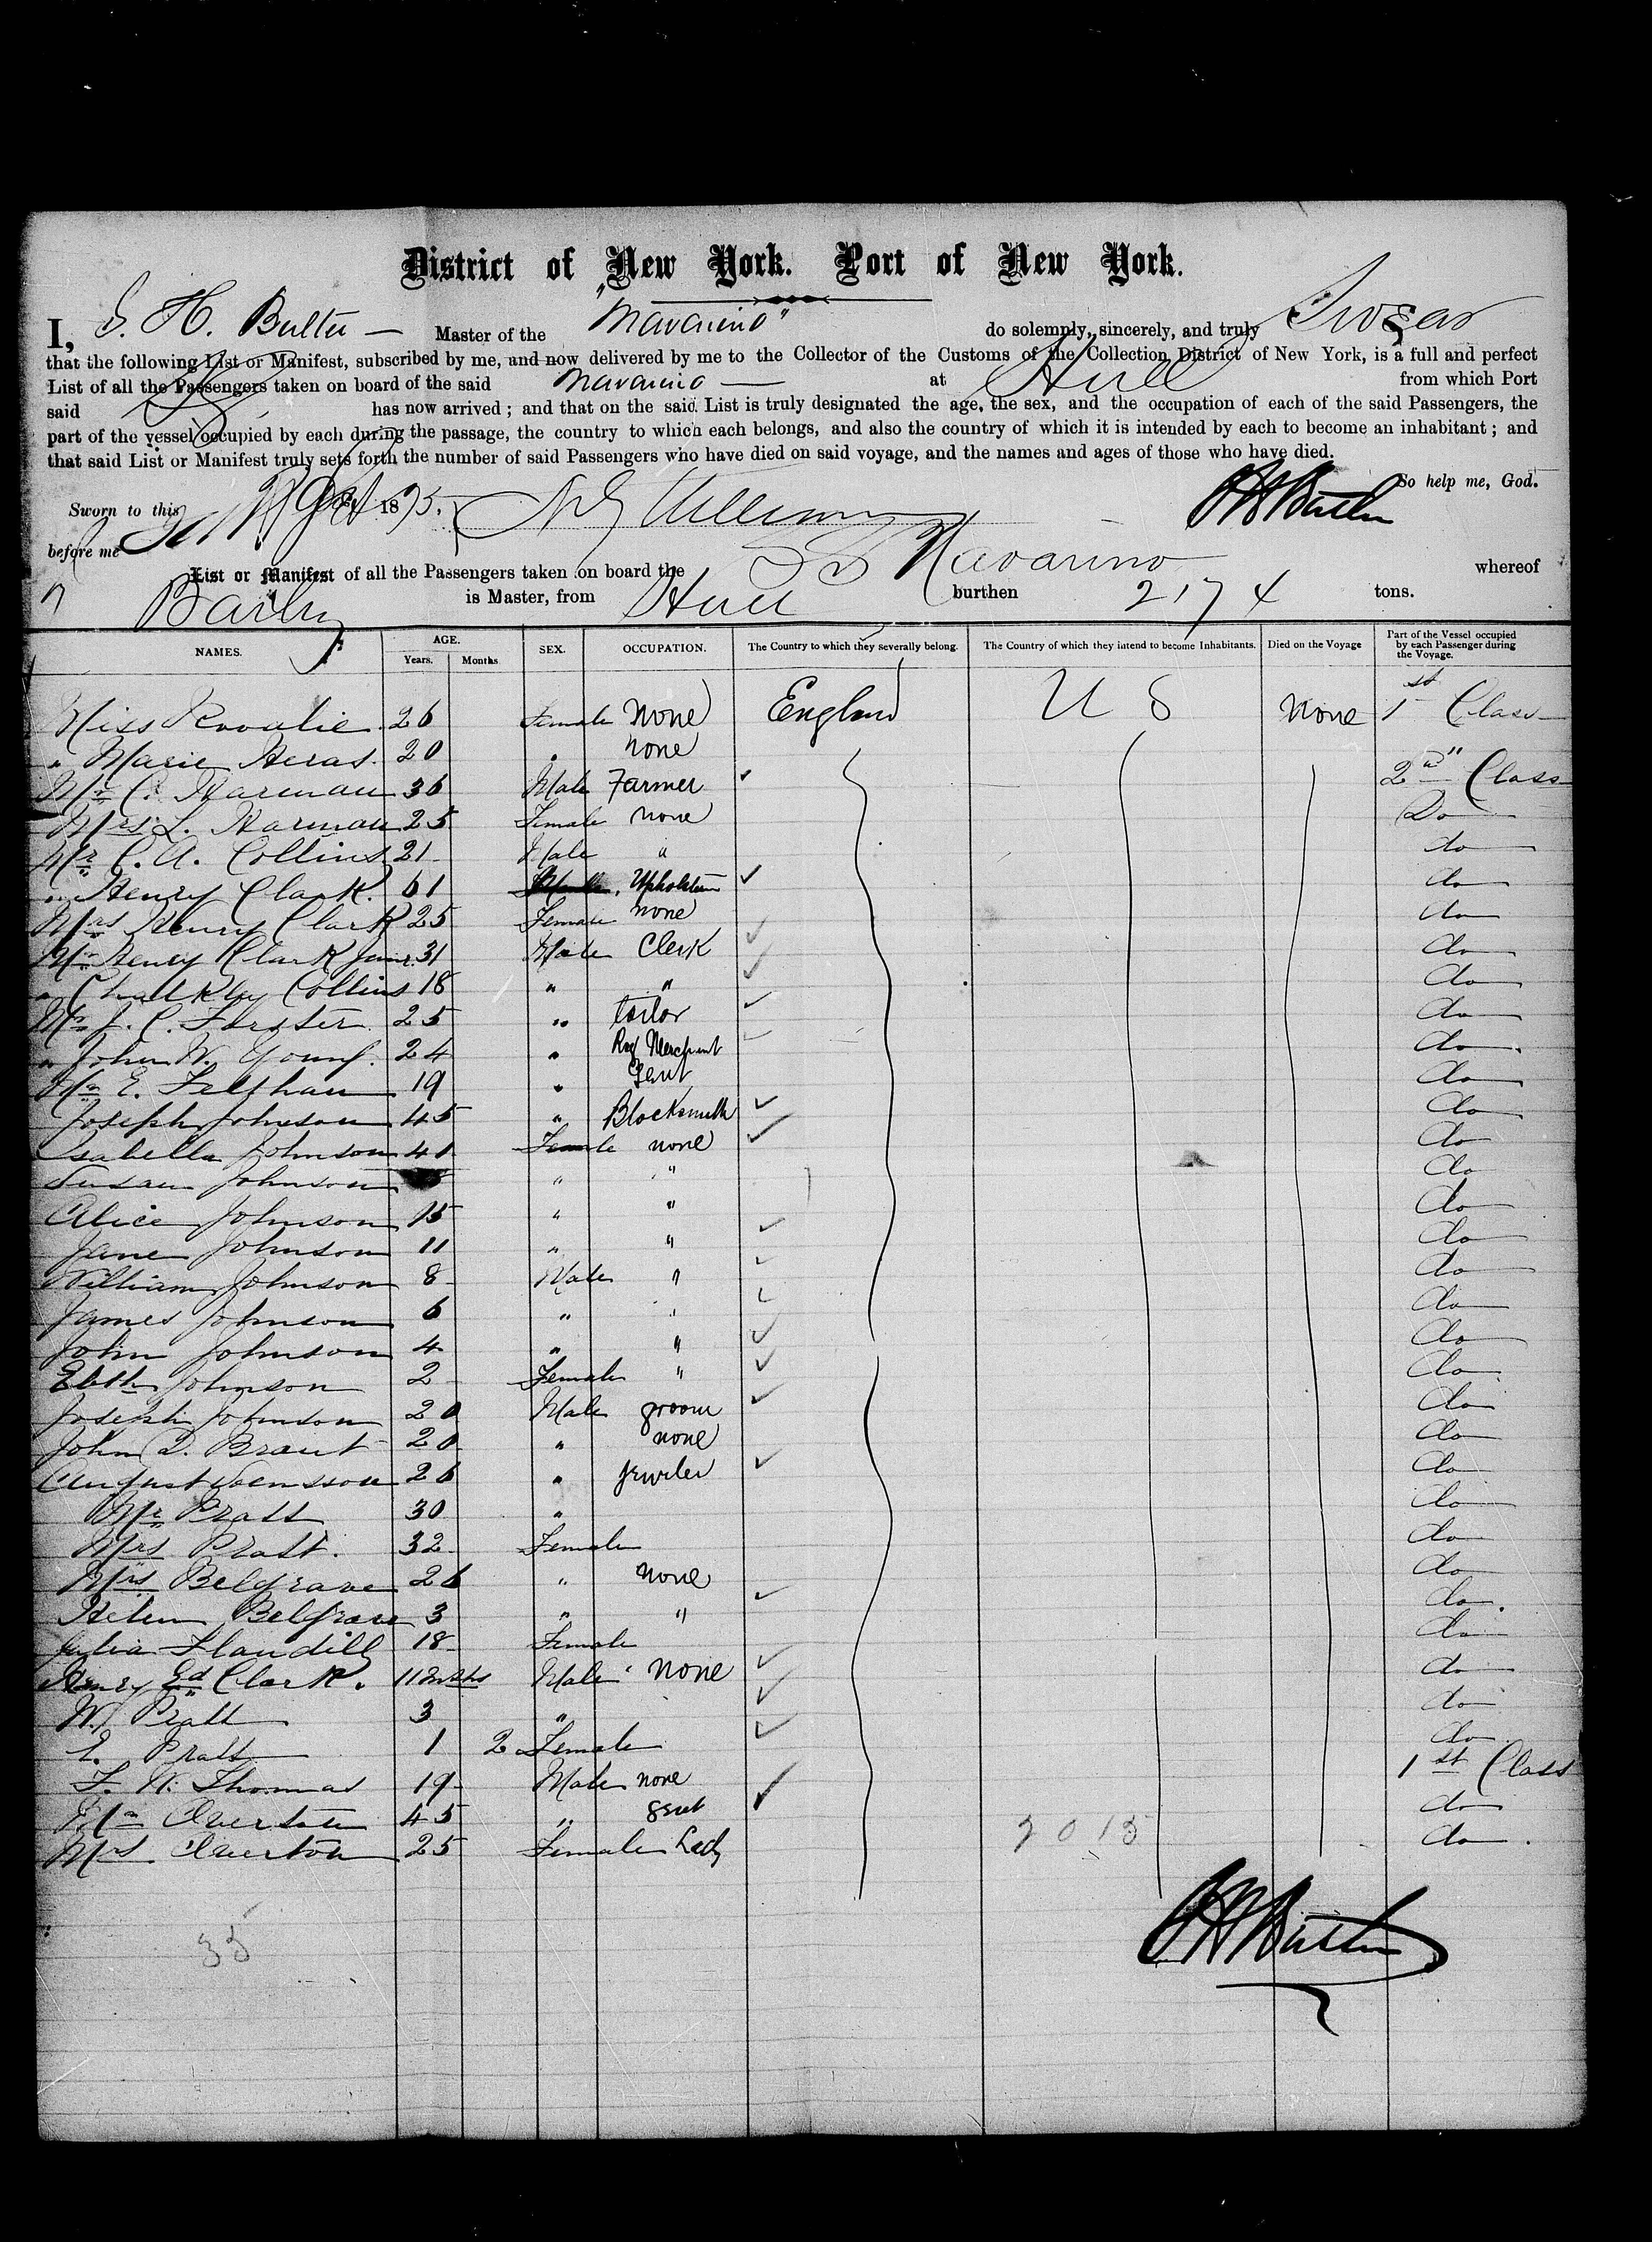 District of New York. Port of New York.
I, S. H. Butler Master of the "Navarino" do solemnly, sincerely, and truly Swear
that the following List or Manifest, subscribed by me, and now delivered by me to the Collector of the Customs of the Collection District of New York, is a full and perfect
List of all the Passengers taken on board of the said Navarino at Hull from which Port
said has now arrived ; and that on the said List is truly designated the age, the sex, and the occupation of each of the said Passengers, the
part of the vessel occupied by each during the passage, the country to which each belongs, and also the country of which it is intended by each to become an inhabitant ; and
that said List or Manifest truly sets forth the number of said Passengers who have died on said voyage, and the names and ages of those who have died.
So help me, God.
Sworn to this 1875.
before me
List or Manifest of all the Passengers taken on board the SS Navarino whereof
is Master, from Hull burthen 2174 tons.
NAMES. AGE. Years. Months. SEX. OCCUPATION. The Country to which they severally belong. The Country of which they intend to become Inhabitants. Died on the Voyage Part of the Vessel occupied by each Passenger during the Voyage.
Miss 26 Female None England U S None 1st Class
" Marie Heras. 20 " none "
Mr C. Harman 36 Male Farmer 2nd Class
Mrs L. Harman 25 Female none Do
Mr C. A. Collins 21 Male " do
" Henry Clark. 61 do
Mrs Henry Clark 25 Female none do
Mr Henry Clark Junr. 31 Male Clerk do
" Collins 18 " " do
Mr J. C. Forster 25 " tailor do
" John W. Young. 24 " Rag Merchant do.
Mr E. Feltham 19 " Gent do
Joseph Johnson 45 " Blacksmith do
Isabella Johnson 40 Female none do
Susan Johnson " " do
Alice Johnson 15 " " do
Jane Johnson 11 " " do
William Johnson 8 Male " do
James Johnson 6 " " do
John Johnson 4 " " do
Ebth Johnson 2 Female " do
Joseph Johnson 20 Male groom do
John D. Brant 20 " none do
August 26 " jeweler do
Mr Pratt 30 " do
Mrs Pratt. 32 Female do
Mrs Belgrave 26 " none do
Helen Belgrave 3 " " do.
Julia 18 Female do
Henry Ed Clark. 11 Mths Male none do
W. Pratt 3 " do
E. Pratt 1 2 Female do
F. W. Thomas 19 Male none 1st Class
Mr Overton 45 " gent do
Mrs Overton 25 Female Lady do.
2015
35